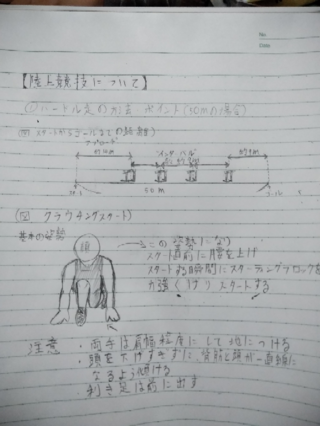 No.
Date
【陸上競技について】
①ハードル走の方法 ポイント(50mの場合)
(図 スタートからゴールまでの距離)
アプローチ
インターバル
スタート
50m
ゴール
(図 クラウチングスタート)
基本の姿勢
頭
→この姿勢になり
スタート直前に腰を上げ
スタートする瞬間にスターティングブロックを
力強くけりスタートする
注意 ・両手は肩幅程度にして地につける
・頭を下げすぎずに、背筋と頭が一直線に
なるよう傾ける
・利き足は前に出す